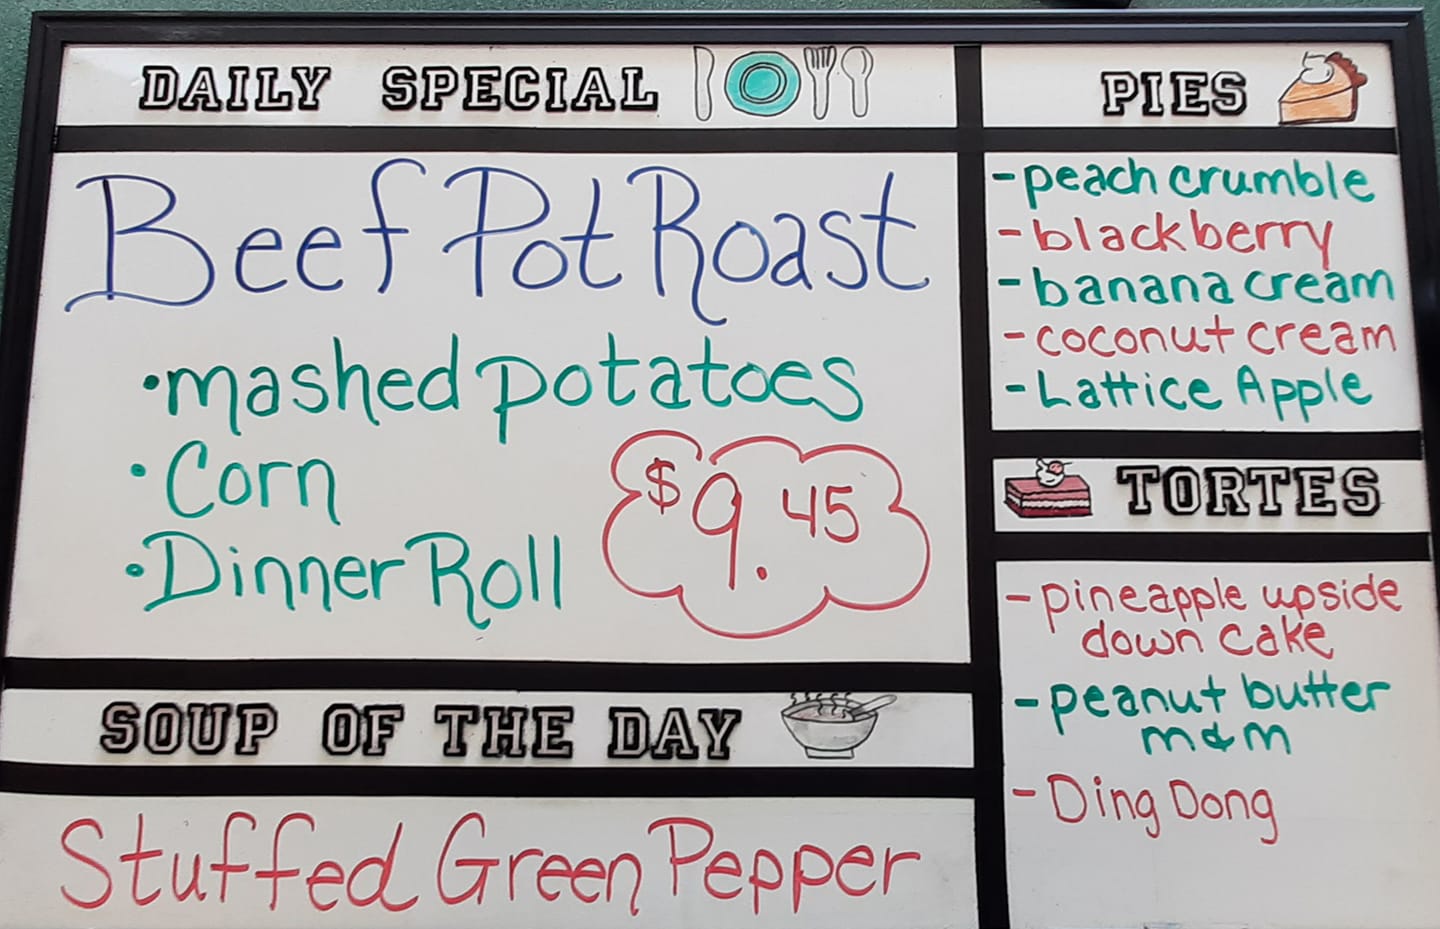 DAILY SPECIAL
Beef Pot Roast
•mashed potatoes
•Corn
•Dinner Roll
$9.45
SOUP OF THE DAY
Stuffed Green Pepper
PIES
-peach crumble
-blackberry
-banana cream
-coconut cream
-Lattice Apple
TORTES
-pineapple upside
down cake
-peanut butter
m&m
-Ding Dong